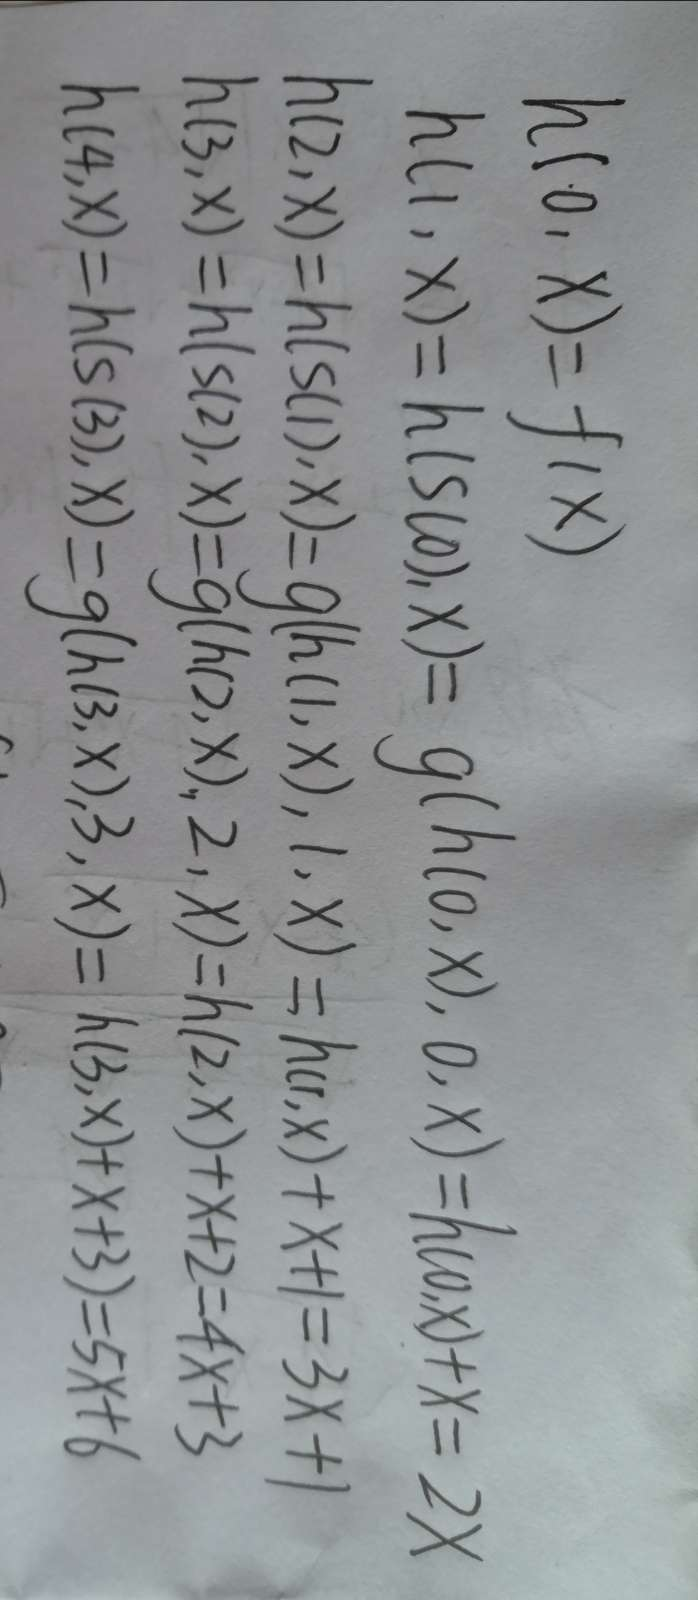 h(0,x)=f(x)
h(1,x)=h(S(0),x)=g(h(0,x),0,x)=h(0,x)+x=2x
h(2,x)=h(S(1),x)=g(h(1,x),1,x)=h(1,x)+x+1=3x+1
h(3,x)=h(S(2),x)=g(h(2,x),2,x)=h(2,x)+x+2=4x+3
h(4,x)=h(S(3),x)=g(h(3,x),3,x)=h(3,x)+x+3)=5x+6